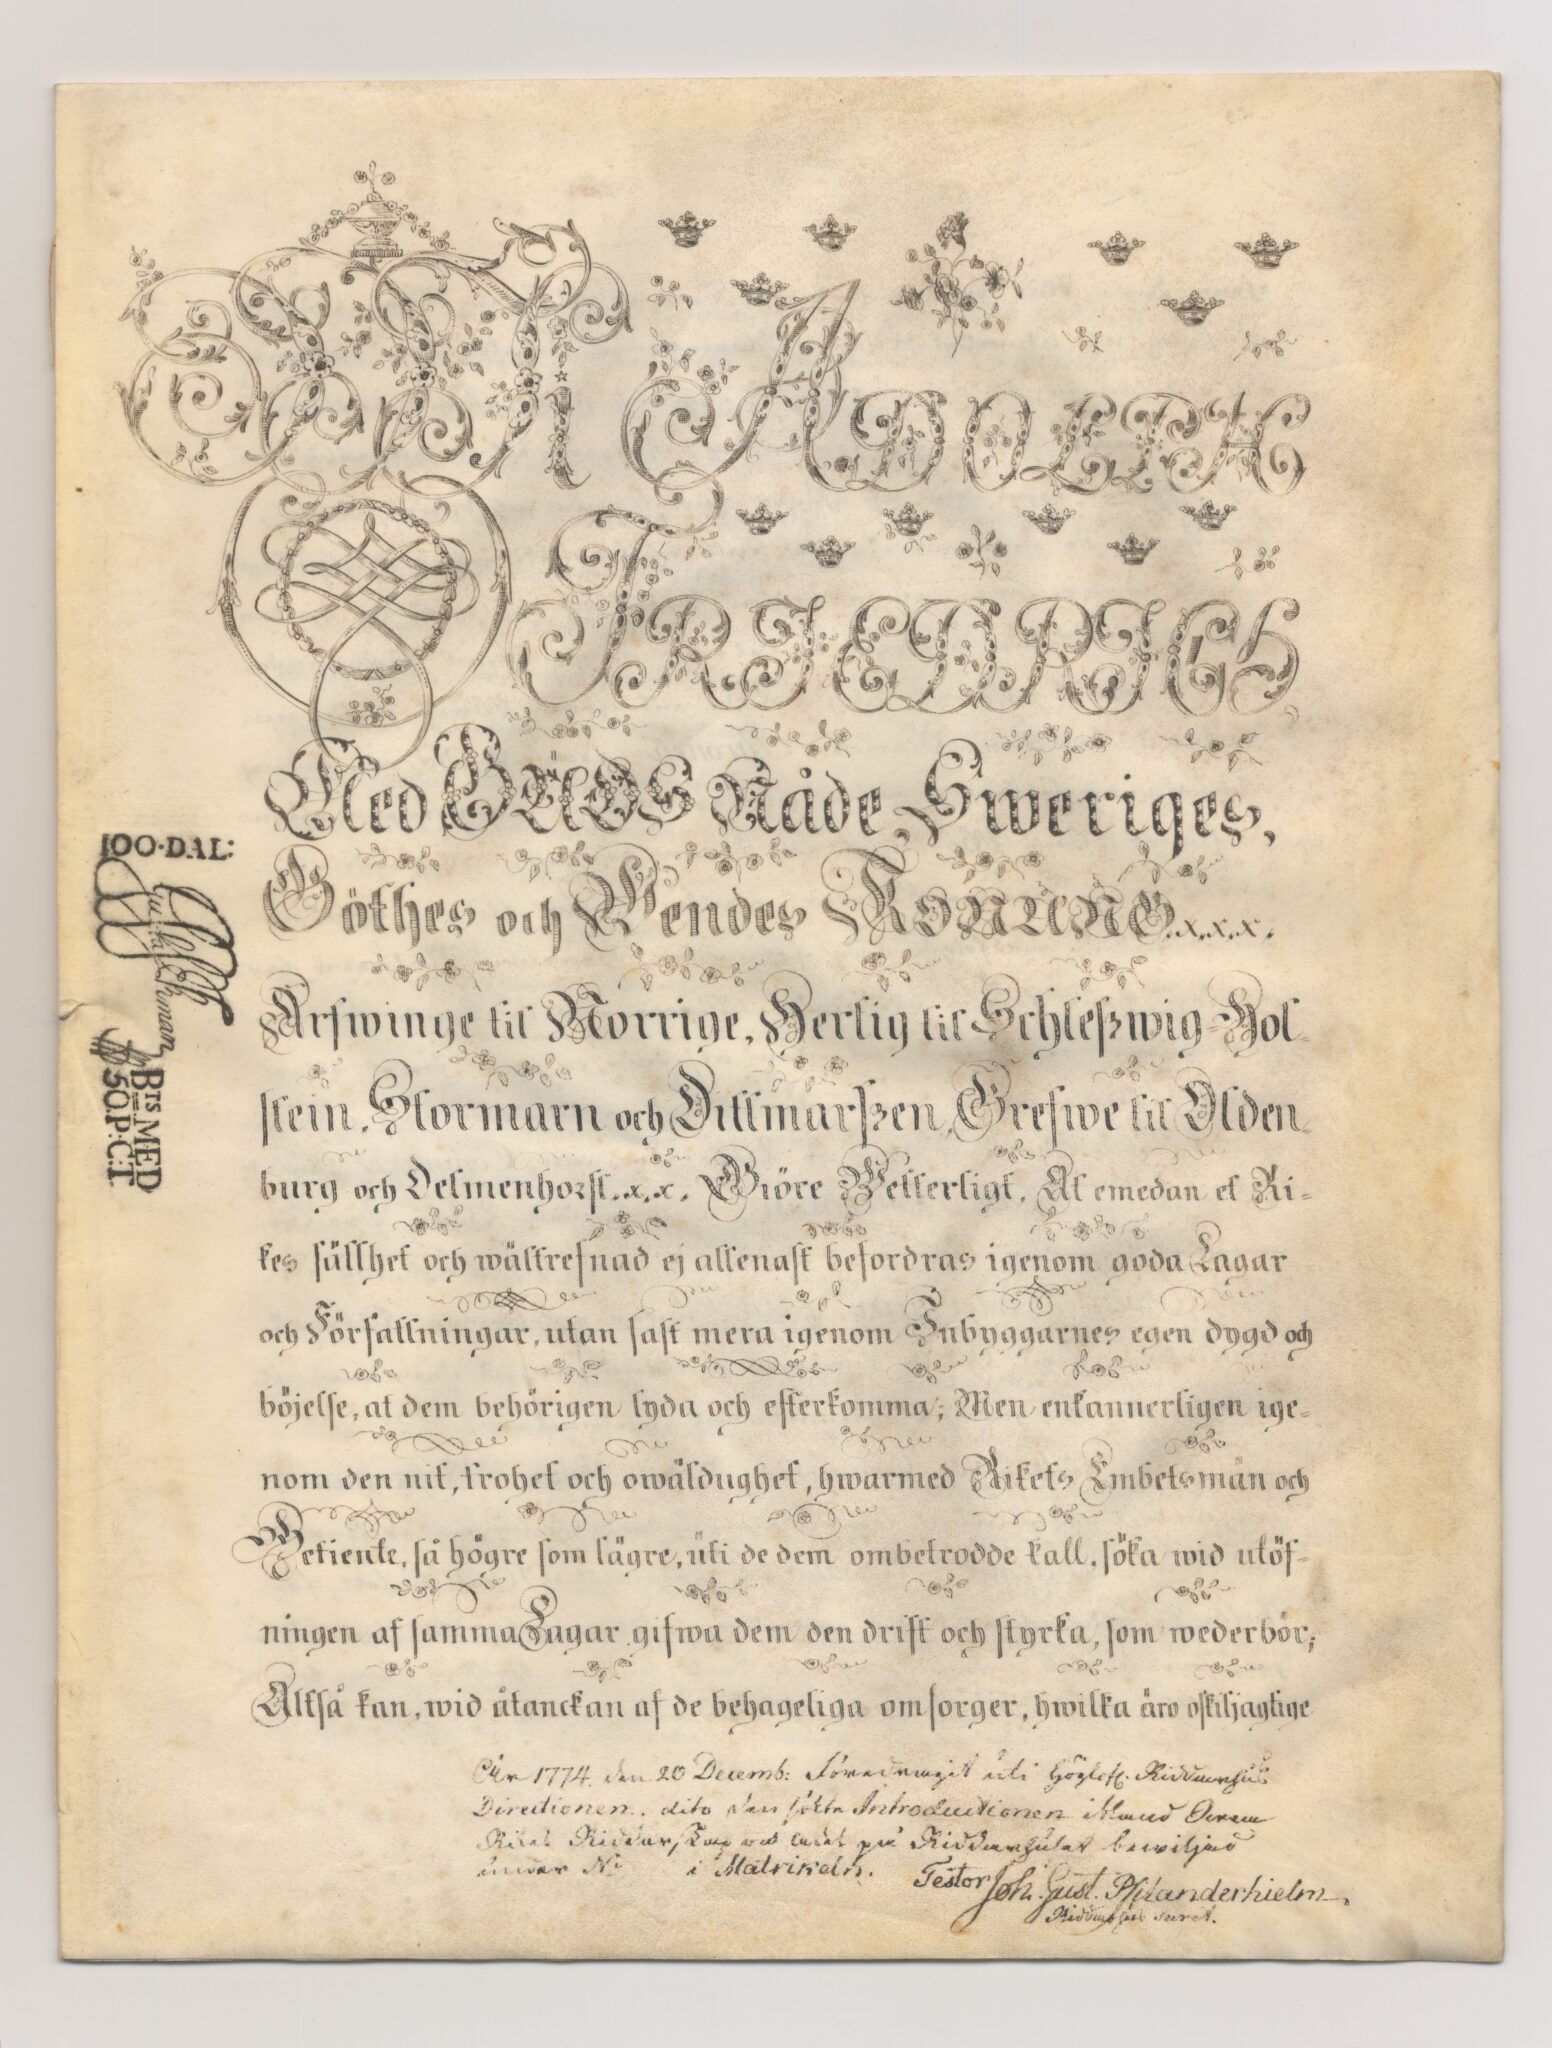 WI ADOLPH
FRIEDRICH,
Med GUDS Nåde, Sweriges,
Göthes och Wendes KONUNG.x.x.x.
Arfwinge til Norrige, Hertig til Schleßwig-Hol-
stein, Stormarn och Dittmarßen, Grefwe til Olden-
burg och Delmenhorst.x.x. Giöre Wetterligt, At emedan et Ri-
kes sällhet och wältrefnad ej allenast befordras igenom goda Lagar
och Författningar, utan fast mera igenom Inbyggarnes egen dygd och
böjelse, at dem behörigen lyda och efterkomma; Men enkannerligen ige-
nom den nit, trohet och owäldughet, hwarmed Rikets Embetsmän och
Betiente, så högre som lägre, uti de dem ombetrodde kall, söka wid utöf-
ningen af samma Lagar gifwa dem den drift och styrka, som wederbör;
Altså kan, wid åtanckan af de behageliga omsorger, hwilka äro oskiljagtige
År 1774. den 20 Decemb: Föredragit uti Högloft. Riddarhus
Directionen, dito den sökte Introductionen ibland
Rikets Ridderskap och Adel på Riddarhuset bewiljad
under No i Matrikeln. Testor Joh. Gust. Philanderhielm.
Riddarhus Secret.
100·DAL:
BTS MED
50.P:C:T